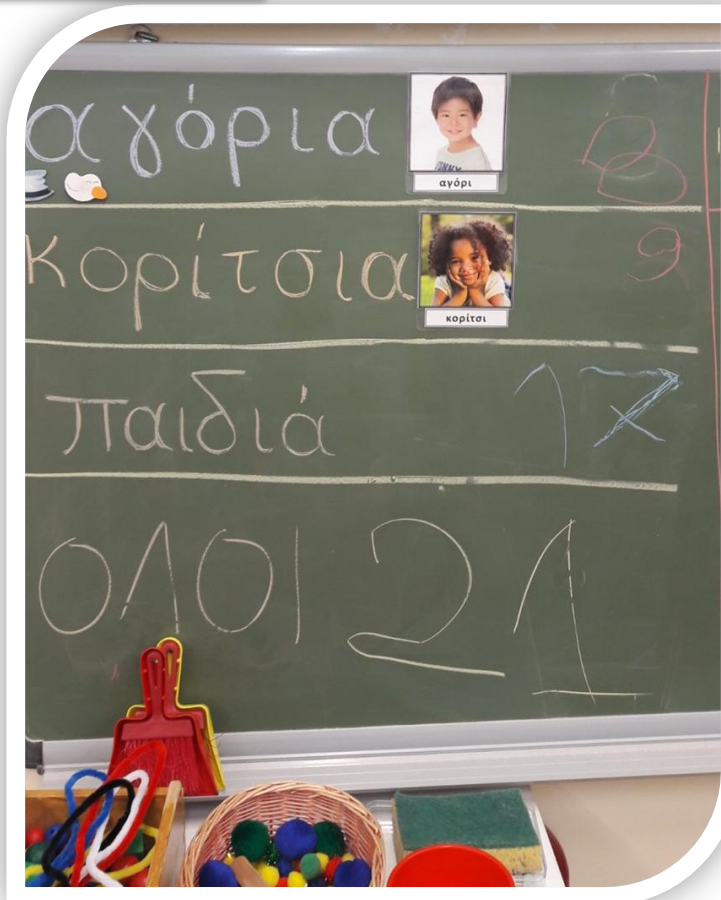 αγόρια 8
αγόρι
κορίτσια 9
κορίτσι
παιδιά 17
ΟΛΟΙ 21